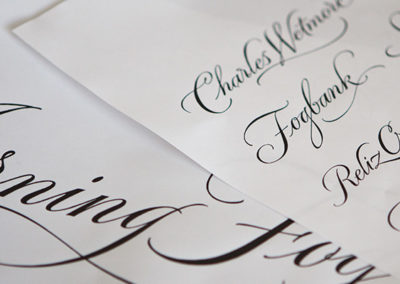 Charles Wetmore
Fogbank
Reliz C
rning Fo